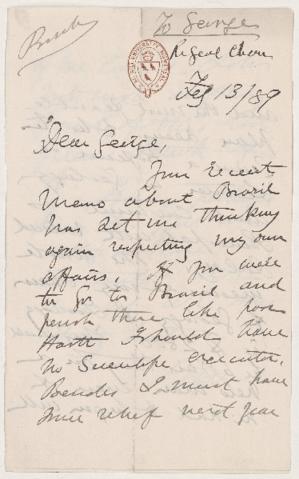 To George
Regent Chan
Feb 13/89
Dear George,
Your recent
memo about Brazil
has set me thinking
again respecting my own
affairs, If you were
to go to Brazil and
perish there like poor
Hartt I should have
no executor.
Besides I must have
some relief next year